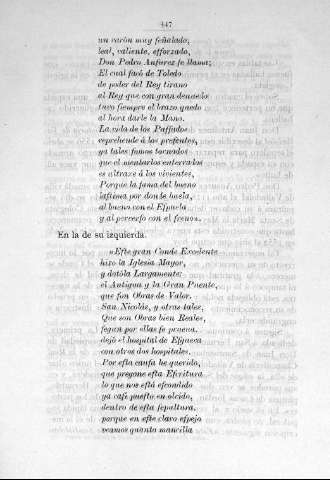 447
un varón muy feñalado,
leal, valiente, efforzado,
Don Pedro Anfurez fe llama;
El cual facó de Toledo
de poder del Rey tirano
al Rey que con gran denuedo
tuvo fiempre el brazo quedo
al horadarle la Mano.
La vida de los Paffados
reprehende á los prefentes,
ya tales fomos tornados
que el mentarlos enterrados
es ultraxe á los vivientes,
Porque la fama del bueno
laftima por donde buela,
al bueno con el Efpuela
y al perverfo con el freno».
En la de su izquierda.
«Efte gran Conde Excelente
hizo la Iglesia Mayor,
y dotóla Largamente;
el Antigua y la Gran Puente,
que fon Obras de Valor.
San Nicolás, y otras tales,
Que son Obras bien Reales,
fegun por ellas fe prueua.
dejó el hospital de Efgueva
con otros dos hospitales.
Por efta caufa he querido,
que pregone efta Efcritura
lo que nos eftá efcondido
ya cafi puefto en olvido,
dentro de efta fepultura,
porque en efte claro efpejo
veamos quanta mancilla